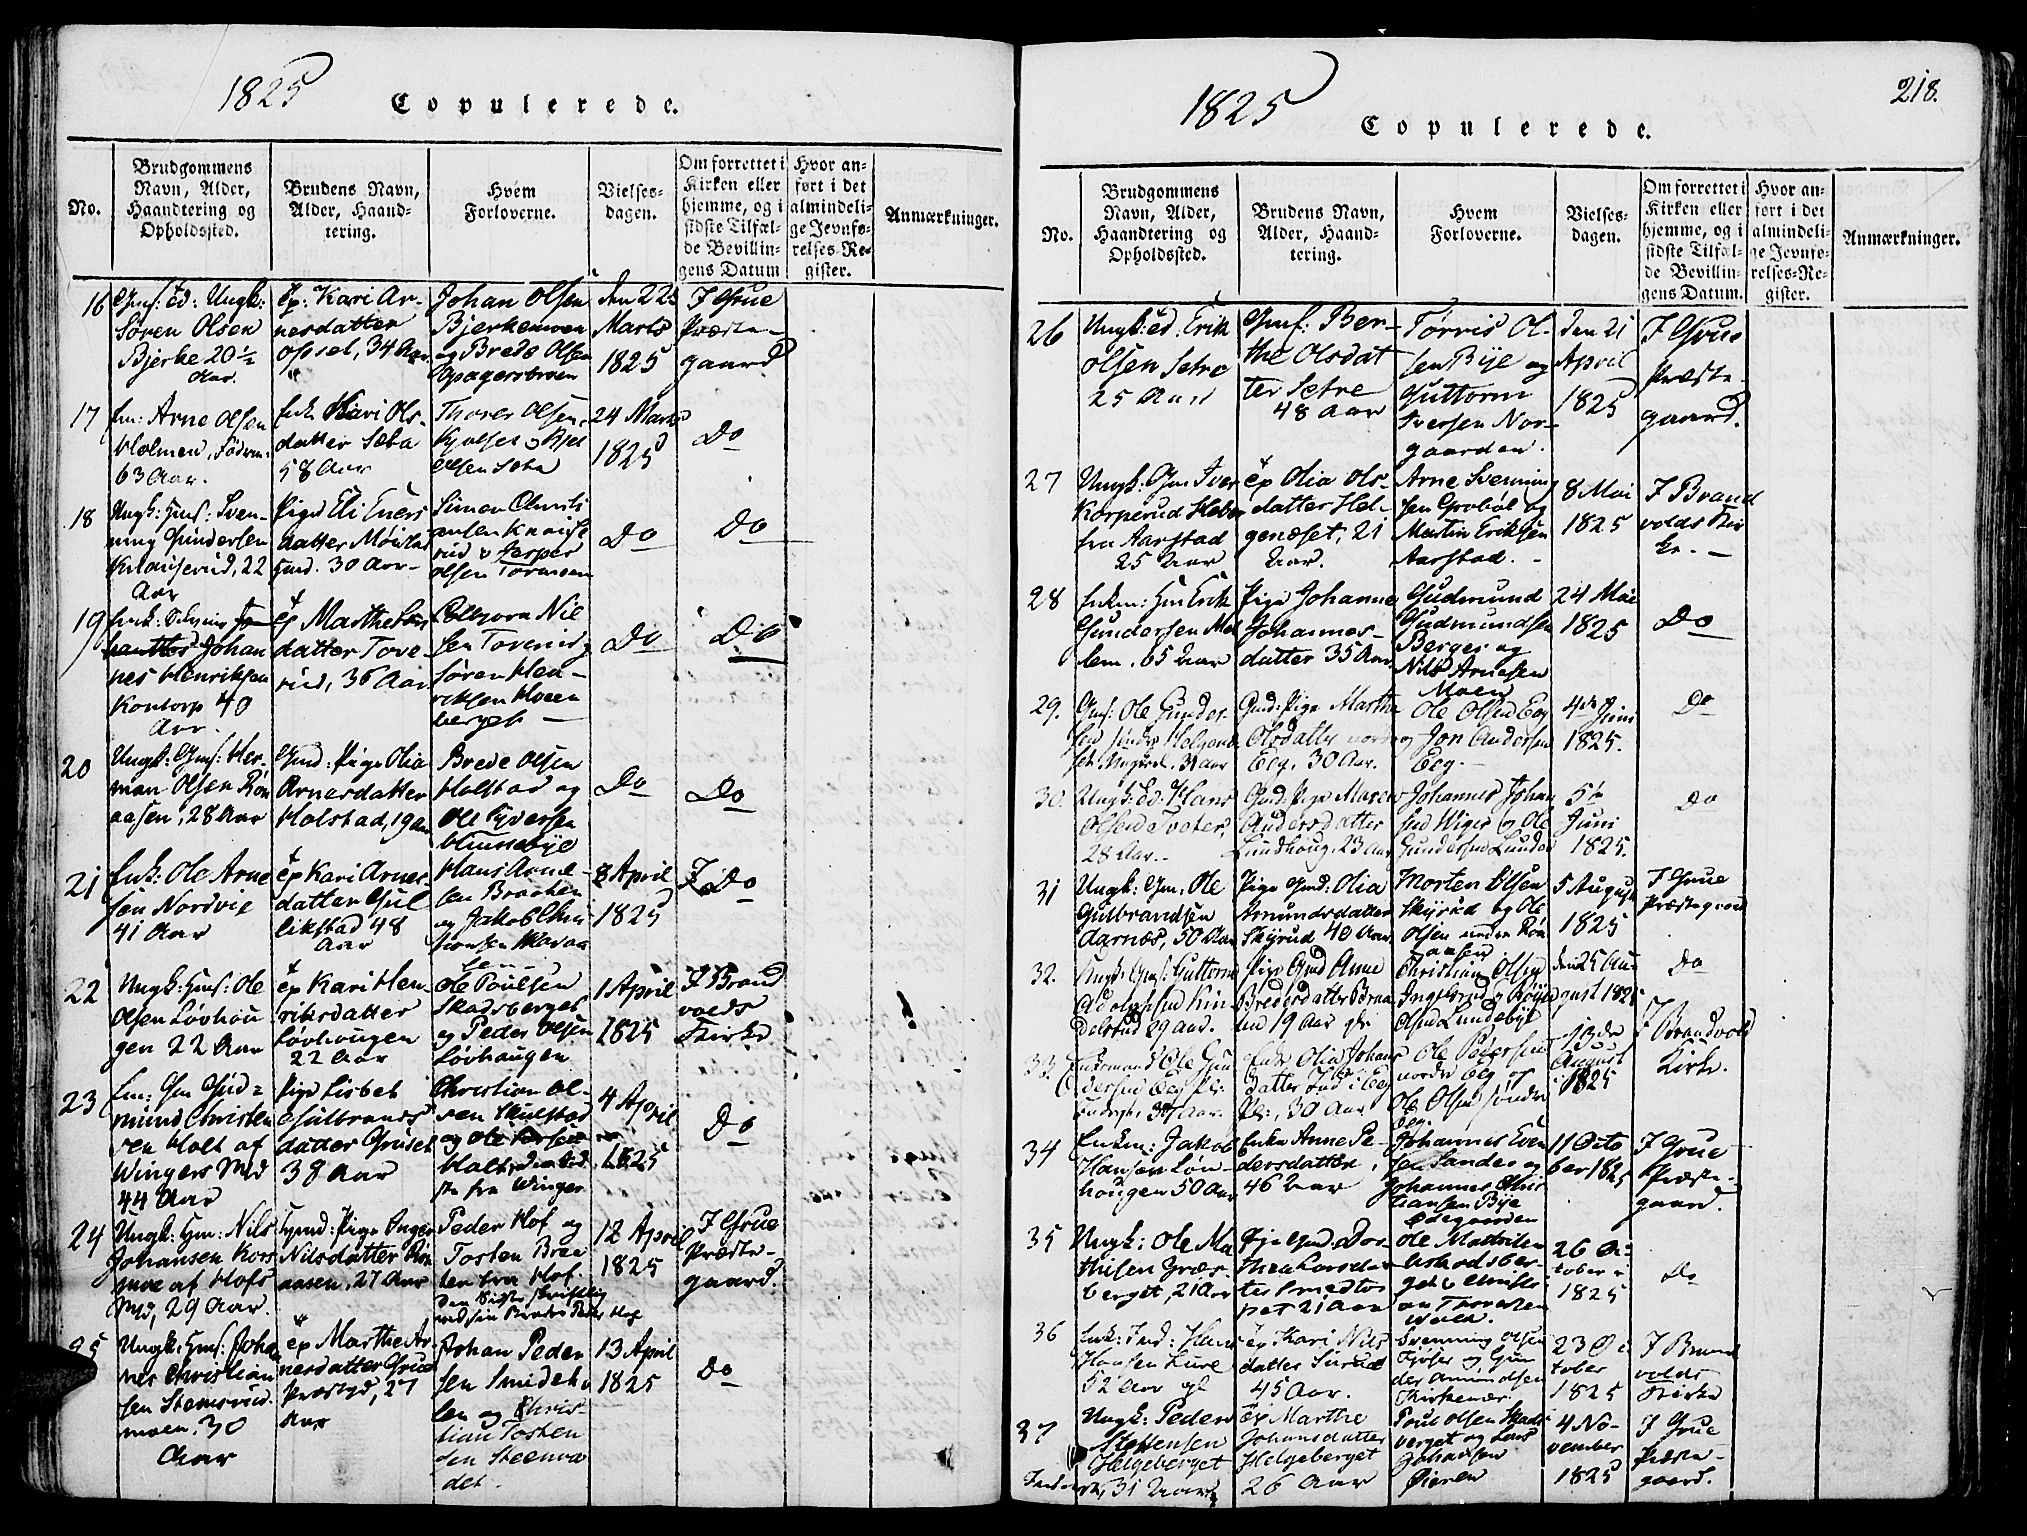 1825
Copulerede.
No.
Brudgommens
Navn, Alder,
Haandtering og
Opholdssted.
Brudens Navn,
Alder, Haand-
tering.
Hvem
Forloverne.
Vielses-
dagen.
Om forrettet i
Kirken eller
hjemme, og i
sidste Tilfæl-
de Bevillin-
gens Datum
Hvor an-
ført i det
almindeli-
ge Jevnfø-
relses-Re-
gister.
Anmærkninger.
16
Søren Olsen
Bjerke 20 ½
Aar.
Kari Ar-
nesdatter
opset, 34 Aar
Johan Olsen
Bjerkemoen
og Brede Olsen
den 22
Marts
1825
I Grue
Præste-
gaard
17
Arne Olsen
Holmen,
63 Aar.
Enke Kari Ols-
datter Sæta
58 Aar
Thores Olsen
Olsen Sæta
24 Marts
1825
Do
18
Ungk: Gms: Sven-
ning Gundersen
Knauserud, 22
Aar
Pige Eli Eners
datter
30 Aar
Simen Christi
ansen Knause
rud & Jesper
olsen
Do
Do
19
Johan
nes Henriksen
Kontorp 40
Aar.
ep Marthe
datter Tove
rud, 36 Aar
Colbjørn Nil
sen Toverud
Søren Hen-
riksen Hoen
berget
Do
Do
20
Ungk: Gms: Her-
man Olsen Røn
aasen, 28 Aar
Gmd: Pige Olia
Arnesdatter
Holstad, 19 aar
Brede Olsen
Holstad og
Ole Syversen
Do
Do
21
Enk: Ole Arne
sen Nordvie
41 Aar
ep Kari Arnes-
datter Gul
likstad 48
Aar
Hans Arne-
sen Braaten
og Jakob Chri
stiansen
8 April
1825
I Do
22
Ungk: Hms: Ole
Olsen Løvhou
gen 22 Aar
ep Kari Hen-
riksdatter
Løvhougen
22 Aar
Ole Poulsen
Skadsberget
og Peder Olsen
Løvhaugen
1 April
1825
I Brand
volds
Kirke.
23
Em: Gm Gud-
mund Christen
sen Holt af
Wingers Md
44 Aar
Pige Lisbet
Gulbrands
datter Gruset
38 Aar
Christian Ol-
sen Skulstad
og Ole
Holt,
fra Winger
4 April
1825
Do
24
Ungk: Gm: Nils
Johansen Kors
moe af Hofs
Md, 29 Aar.
Gmd: Pige Inger
Nilsdatter Røn
aasen, 27 Aar
Peder Hof og
Tosten Braa
ten fra Hof.
12 April
1825
I Grue
Præste-
gaard.
25
Ungk: Hms: Johan
nes Christian
sen Stemsrud
moen, 30
Aar
ep Marthe Ar-
nesdatter Grue
Præstgd, 27
Aar
Johan Peder
sen Smideho
len og Chris-
tian Tosten
sen Steenva
det.
13 April
1825
Do
1825
Copulerede.
218.
No.
Brudgommens
Navn, Alder,
Haandtering og
Opholdssted.
Brudens Navn,
Alder, Haand-
tering.
Hvem
Forloverne.
Vielses-
dagen.
Om forrettet i
Kirken eller
hjemme, og i
sidste Tilfæl-
de Bevillin-
gens Datum.
Hvor an-
ført i det
almindeli-
ge Jevnfø-
relses-Re-
gister.
Anmærkninger.
26
Ungk: Ed: Erik
Olsen Setre
25 Aar
Gmf: Ber-
the Olsdat
ter Setre
48 Aar
Tørris Ol-
sen Bye og
Guttorm
Iversen Nor-
gaarden.
den 21
April
1825
I Grue
Præste-
gaard.
27
Ungk: Gm Iver
Korperud
fra Aarstad
25 Aar
ep Olia Ols-
datter Hel-
genæset, 21
Aar.
Arne Svenning
sen Grobøl og
Martin Eriksen
Aarstad.
8 Mai
1825
I Brand
volds Kir
ke.
28
Enkm: Hm Erik
Gundersen Mel
lem, 65 Aar
Pige Johanne
Johannes-
datter 35 Aar
Gudmund
Gudmundsen
Berger og
Nils Arnesen
Moen
24 Mai
1825
Do
29.
Gms: Ole Gunder-
sen søndre Helgenæ
set Ungkl. 31 aar
Gmd: Pige Marthe
Olsdatter nordre
Eeg, 30 Aar.
Ole Olsen Eeg
og Jon Andersen
Eeg.
4de Juni
1825.
Do
30.
Ungk: Ed: Hans
Olsen Tveter,
28 Aar.
Gmd: Pige Maren
Andersdatter
Lundhoug, 23 aar
Johannes Johan
sen Wiger og Ole
Gundersen Lunder
5te
Juni
1825.
Do
31
Ungk: Gm: Ole
Gulbrandsen
Aarnæs, 50 Aar
Pige Gmd: Olia
Amundsdatter
Skyrud 40 Aar
Morten Olsen
Skyrud og Ole
Olsen nedre Røn
aasen
5 August
1825
I Grue
Præstegaard
32.
Ungk: Gms: Guttorm
Adolphsen Kin-
delsrud 29 aar.
Pige Gmd Anne
Bredesdatter Braa
ten 19 Aar gl:
Christian Olsen
Ingelsrud og
Olsen Lundebye
den 25 Au-
gust 1825
Do
33.
Enkemand Ole Gun
dersen Eeg Pl:
Enke Olia Johans
datter Ind: i Eeg
Pl:, 30 Aar
Ole Pedersen
nordre Eeg og
Ole Olsen søndre
Eeg.
13de
August
1825
I Brandvold
Kirke.
34
Enkm: Jakob
Hansen Løn-
hougen 50 Aar
Enke Anne Pe-
dersdatter,
46 Aar
Johannes Even
sen Sander og
Johannes Chris
tiansen Bye
Ødegaarden
11 Octo
ber 1825
I Grue
Præste-
gaard.
35
Ungk: Ole Ma
thisen Græs-
berget, 21 Aar
Pige Gmd: Dor-
thea Larsdat
ter Smedtor
pet 21 Aar
26 Oc-
tober
1825
Do
36
Enk: Ind: Hans
Hansen Lure
52 Aar gl
ep Kari Nils
datter
45 Aar.
Svenning Olsen
og Gun
der Amundsen
Kirkenær
23 Oc
tober
1825
I Brand
volds
Kirke
37
Ungk: Peder
Steffensen
Helgeberget
31 Aar
ep Marthe
Johansdatter
Helgeberget
26 Aar
Poul Olsen Skads-
berget og Lars
Johansen
Øieren
4 No-
vember
1825
I Grue
Præste-
gaard.